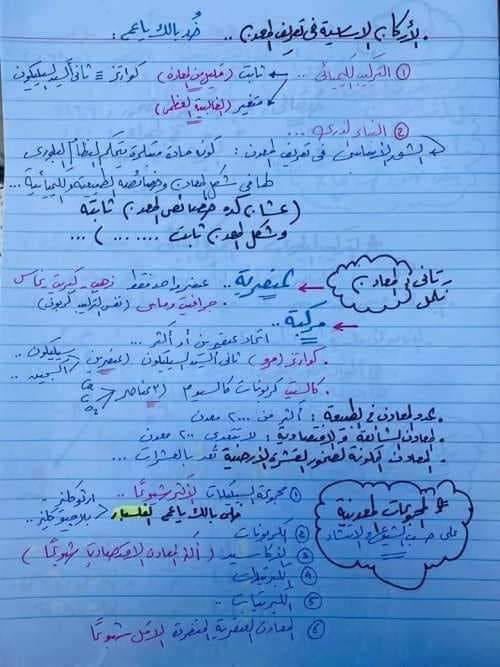 الأركان الأساسية في تعريف المعدن .. خُد بالك يا عم :
① التركيب الكيميائي .. ثابت (قليل من المعادن) كوارتز = ثاني أكسيد السيليكون
متغير (الغالبية العظمى)
② البناء الذري ...
الشق الأساسي في تعريف المعدن : كونه مادة متبلرة يتحكم النظام البلوري
في شكل المعادن وخصائصه الطبيعية والكيميائية ...
(عشان كده خصائص المعدن ثابتة
وشكل المعدن ثابت ... ...) ...
المعادن
عنصرية .. عنصر واحد فقط ذهب - كبريت - نحاس
جرافيت وماس (نفس التركيب كربون)
مركبة ..
اتحاد عنصرين أو أكثر ...
كوارتز (مرو) ثاني أكسيد السيليكون (عنصرين) سيليكون .. أكسجين ..
كالسيت كربونات كالسيوم (٣ عناصر) Ca C O₂
عدد المعادن في الطبيعة : أكثر من ٢٠٠٠ معدن
المعادن الشائعة والاقتصادية : لا تتعدى ٢٠٠ معدن
المعادن المكونة لصخور القشرة الأرضية تعد بالعشرات ...
المجموعات المعدنية
على حسب الشيوع والانتشار
① مجموعة السيليكات الأكثر شيوعًا .. أرثوكليز
خلي بالك يا عم الفلسبار بلاجيوكليز
② الكربونات
③ الأكاسيد (أكثر المعادن الاقتصادية شيوعًا)
④ الكبريتات
⑤ الكبريتيدات ..
⑥ المعادن العنصرية المنفردة الأقل شيوعًا